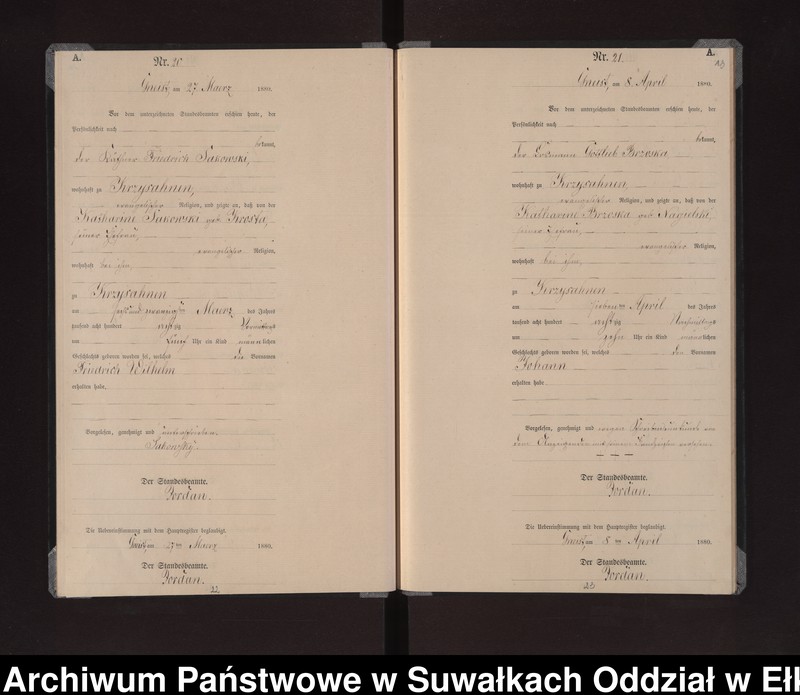 A.
Nr. 20
am 27 Maerz 1880.
Vor dem unterzeichneten Standesbeamten erschien heute, der
Persönlichkeit nach
bekannt,
der Friedrich Sakowski,
wohnhaft zu Krzysahnen,
evangelischer Religion, und zeigte an, daß von der
Katharine Sakowski geb.
seiner Ehefrau,
evangelischer Religion,
wohnhaft bei ihm,
zu Krzysahnen
am sechs und zwanzig ten Maerz des Jahres
tausend acht hundert achtzig
um fünf Uhr ein Kind männlichen
Geschlechts geboren worden sei, welches den Vornamen
Friedrich Wilhelm
erhalten habe.
Vorgelesen, genehmigt und unterschrieben.
Sakowsky.
Der Standesbeamte.
Jordan.
Die Uebereinstimmung mit dem Hauptregister beglaubigt.
am 27 ten Maerz 1880.
Der Standesbeamte.
Jordan.
22
A.
Nr. 21
am 8. April 1880.
Vor dem unterzeichneten Standesbeamten erschien heute, der
Persönlichkeit nach
bekannt,
der Losmann Gottlieb Brzoska
wohnhaft zu Krzysahnen,
evangelischer Religion, und zeigte an, daß von der
Katharine Brzoska geb.
seiner Ehefrau,
evangelischer Religion,
wohnhaft bei ihm,
zu Krzysahnen
am sieben ten April des Jahres
tausend acht hundert achtzig Nachmittags
um zehn Uhr ein Kind männlichen
Geschlechts geboren worden sei, welches den Vornamen
Johann
erhalten habe.
Vorgelesen, genehmigt und wegen von
dem Anzeigenden mit seinem Handzeichen versehen.
Der Standesbeamte.
Jordan.
Die Uebereinstimmung mit dem Hauptregister beglaubigt.
am 8 ten April 1880.
Der Standesbeamte.
Jordan.
23
Archiwum Państwowe w Suwałkach Oddział w Eł